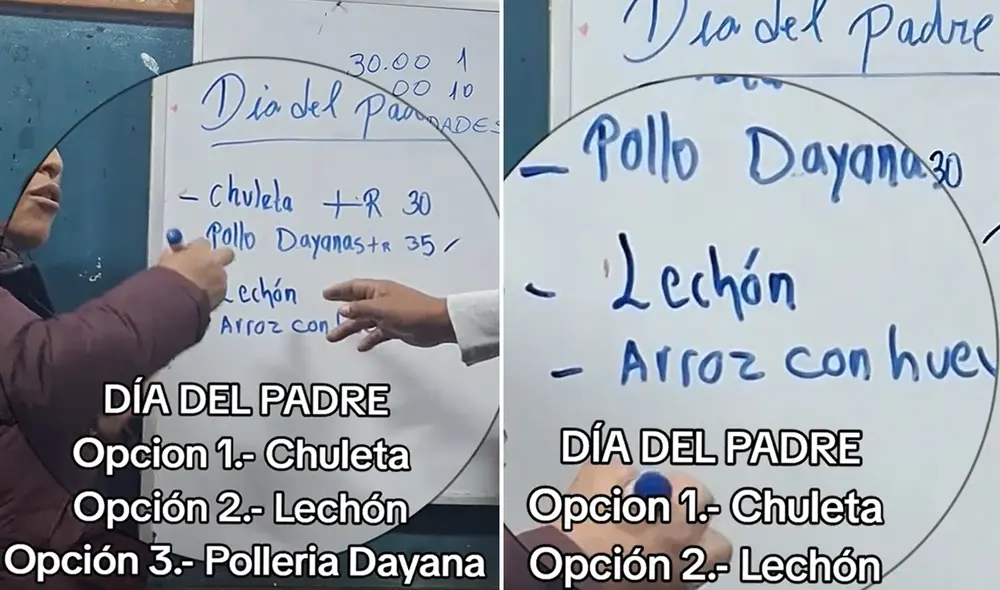 30.00 1
00 10
Dia del Pad
DADES
- Chuleta + R 30
Pollo Dayanas + R 35 /
Lechón
Arroz con
DÍA DEL PADRE
Opcion 1.- Chuleta
Opción 2.- Lechón
Opción 3.- Polleria Dayana
Dia del Padre
- Pollo Dayana 30
- Lechón
- Arroz con huev
DÍA DEL PADRE
Opcion 1.- Chuleta
Opción 2.- Lechón